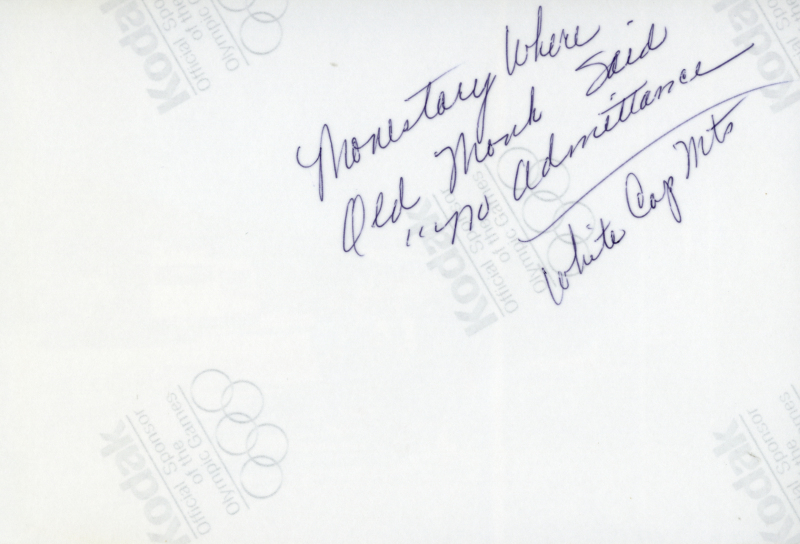 Monestary Where
Old Monk Said
"no Admittance
White Cap Mts
Kodak
Official Sponsor
of the
Olympic Games
Kodak
Official Sponsor
of the
Olympic Games
Kodak
Official Sponsor
of the
Olympic Games
Kodak
Official Sponsor
of the
Olympic Games
Kodak